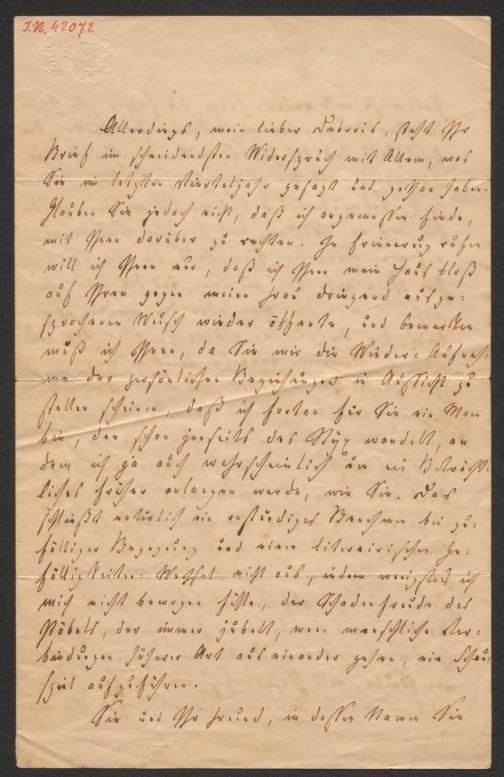 I.N. 42072
Allerdings, mein lieber Debrois, steht Ihr
Brief im schneidendsten Widerspruch mit Allem, was
Sie im letzten Vierteljahr gesagt und gethan haben.
Glauben Sie jedoch nicht, daß ich angemessen finde,
mit Ihnen darüber zu rechten. In Erinnerung rufen
will ich Ihnen nur, daß ich Ihnen mein Haus bloß
auf Ihren gegen meine Frau dringend ausge-
sprochenen Wunsch wieder öffnete, und bemerken
muß ich Ihnen, da Sie mir die Wieder-Aufnah-
me der persönlichen Beziehungen in Aussicht zu
stellen scheinen, daß ich fortan für Sie ein Mann
bin, der schon jenseits des Styx wandelt, an
dem ich ja auch wahrscheinlich um ein Beträcht-
liches früher anlangen werde, wie Sie. Das
schließt natürlich ein anständiges Benehmen bei zu-
fälliger Begegnung und einen literairischen Ge-
fälligkeiten-Wechsel nicht aus, indem wenigstens ich
mich nicht bewogen fühle, der Schadenfreude des
Pöbels, der immer jubelt, wenn menschliche Ver-
bindungen höherer Art aus einander gehen, ein Schau-
spiel aufzuführen.
Sie und Ihr Freund, in dessen Namen Sie